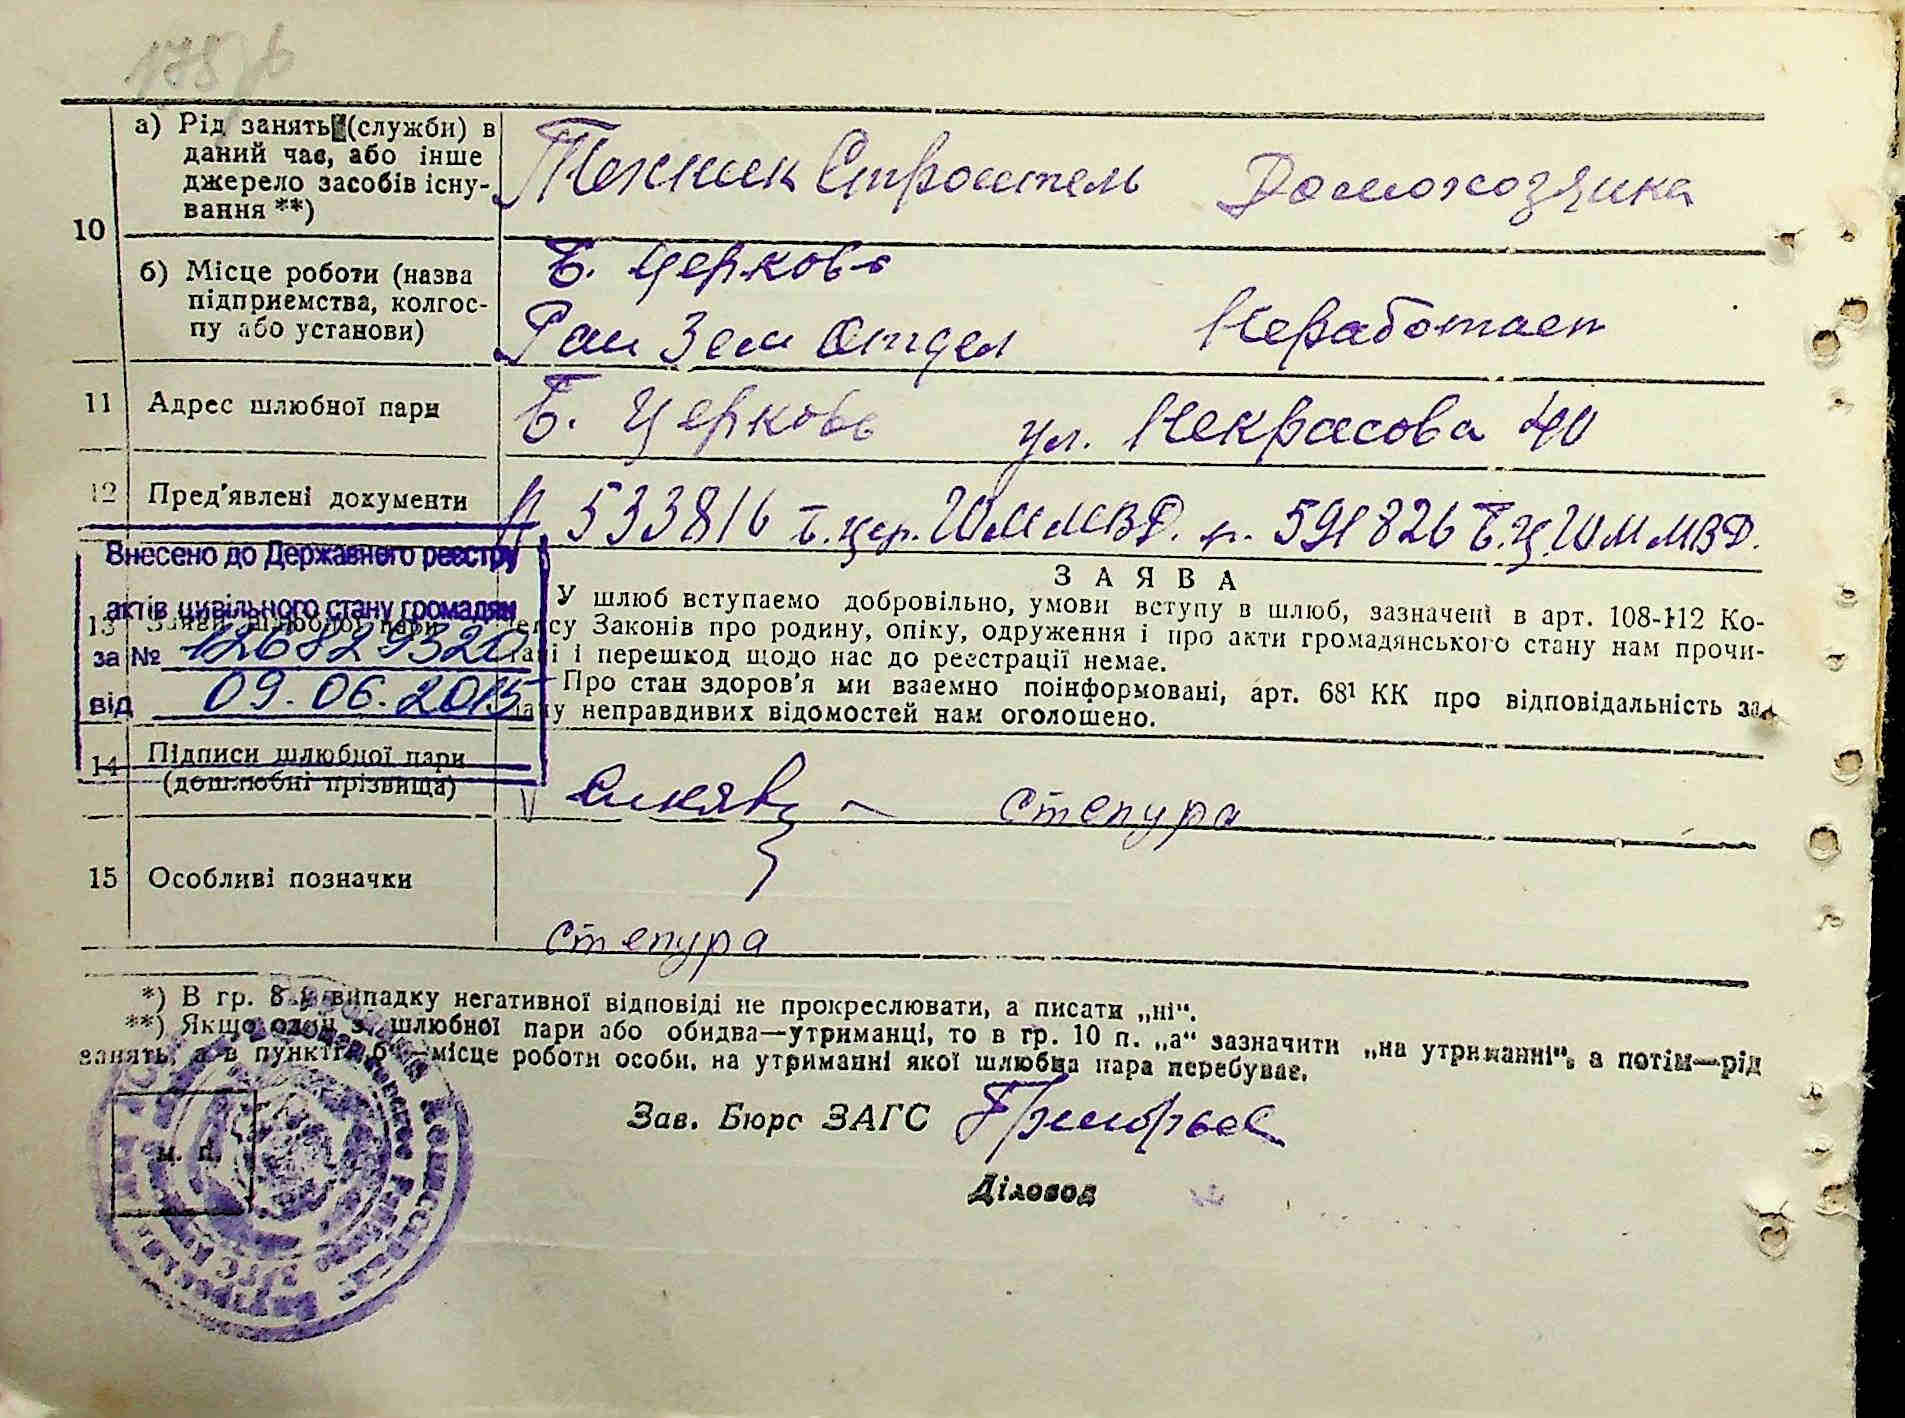 а) Рід занять (служби) в
даний час, або інше
джерело засобів існу-
вання **)
Техник Строитель Домохозяика
10
б) Місце роботи (назва
підприємства, колгос-
пу або установи)
Б. Церковь
Рай Зем Отдел Неработает
11 Адрес шлюбної пари
Б. Церковь ул. Некрасова 40
12 Пред'явлені документи
533816 Б. Цер. МВД. п. 591826 Б.Ц. МВД.
Внесено до Державного реєстру
актів цивільного стану громадян
за № 126829320
від 09.06.2015
13
ЗАЯВА
У шлюб вступаемо добровільно, умови вступу в шлюб, зазначені в арт. 108-112 Ко-
дексу Законів про родину, опіку, одруження і про акти громадянського стану нам прочи-
тані і перешкод щодо нас до реєстрації немає.
Про стан здоров'я ми взаємно поінформовані, арт. 68¹ КК про відповідальність за
дачу неправдивих відомостей нам оголошено.
14 Підписи шлюбної пари
(дошлюбні прізвища)
Степура
15 Особливі позначки
Степура
*) В гр. 8-9 випадку негативної відповіді не прокреслювати, а писати „ні“.
**) Якщо один з шлюбної пари або обидва—утриманці, то в гр. 10 п. „а“ зазначити „на утриманні“, а потім—рід
занять, а в пункті „б“—місце роботи особи, на утриманні якої шлюбна пара перебуває.
Зав. Бюро ЗАГС
Діловод
м. п.